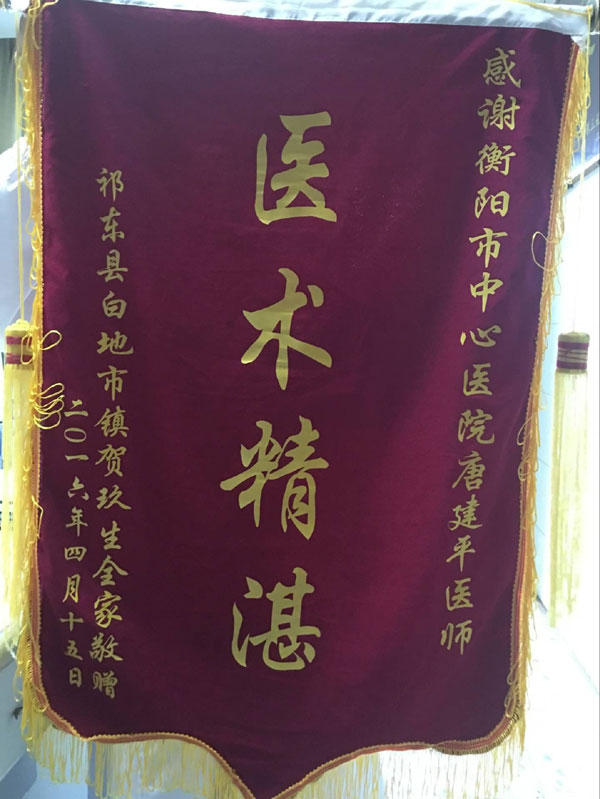 感谢衡阳市中心医院唐建平医师
医术精湛
祁东县白地市镇贺玖生全家敬赠
二〇一六年四月十五日